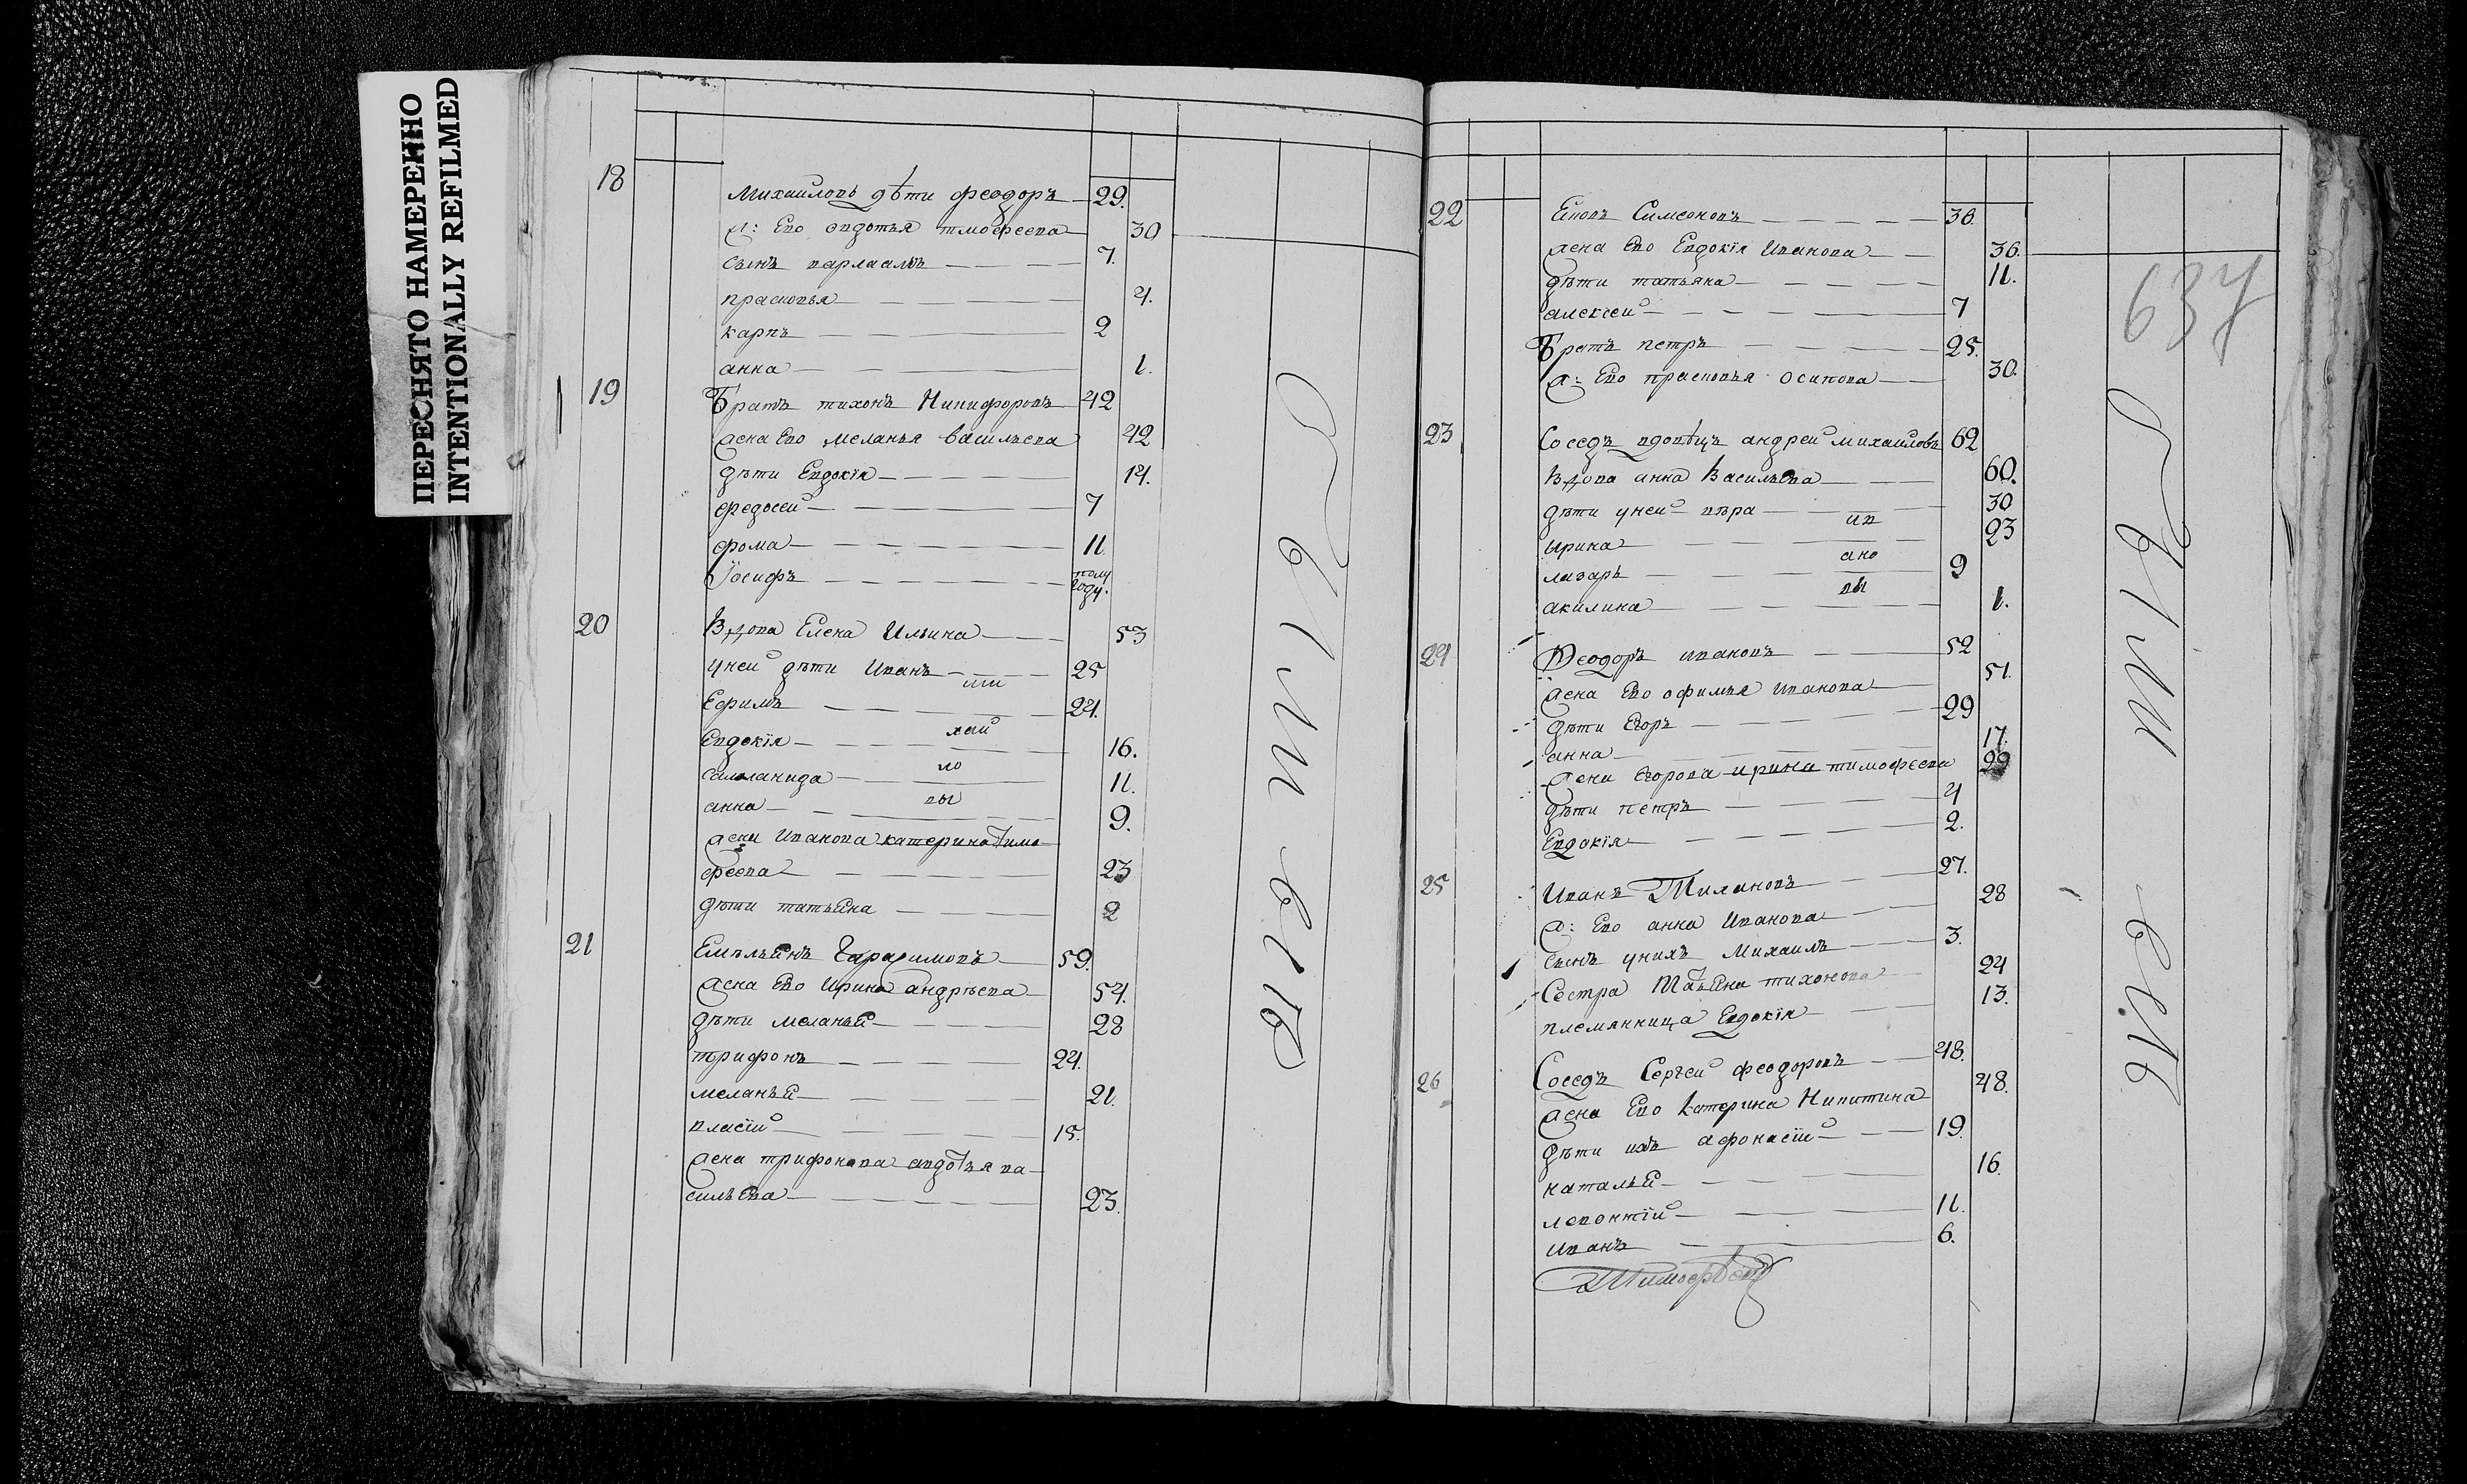 ПЕРЕСНЯТО НАМЕРЕННО
INTENTIONALLY REFILMED
18
Михаиловы дѣти феодоръ 29.
ж: Ево овдотья тмофеева 30
сынъ варлаамъ 7.
прасковья 4.
карпъ 2
анна 1.
19
Братъ тихонъ Никифоровъ 42
жена Ево меланья васильева 42
дѣти Евдокія 14.
федосей 7
фома 11
Іосифъ полугоду.
20
Вдова Елена Ильина 53
уней дѣти Иванъ 25
ми
Ефимъ 24.
хай
Евдокія 16.
ло
саламанида 11.
вы
анна 9.
жена Иванова катерина тимо
феева 23
дѣти татьяна 2
21
Емельянъ Гарасимовъ 59.
жена Ево Ирина андрѣева 54.
дѣти меланья 28
трифонъ 24.
меланья 21.
власій 15.
жена трифонова авдотья ва
сильева 23.
22
Семеновъ 36.
жена Ево Евдокія Иванова 36.
дѣти татьяна 11.
алексей 7
Братъ петръ 25.
ж: Ево прасковья осипова 30.
23
Соседъ вдовецъ андрей михаиловъ 62
Вдова анна Васильева 60.
дѣти уней вѣра 30
ив
ирина 23
ано
лазарь 9
вы
акилина 1.
24
Феодоръ ивановъ 52
жена Ево офимья Иванова 51.
дѣти Егоръ 29
анна 17.
жена Егорова ирина тимофеева 29
дѣти петръ 4
Евдокія 2.
25
Иванъ 27.
ж: Ево анна Иванова 28
сынъ унихъ Михаилъ 3.
Сестра Татьяна тихонова 24
племянница Евдокія 13.
26
Соседъ Сергей феодоровъ 48.
жена Ево Катерина Никитина 48.
дѣти ихъ афонасій 19.
наталья 16.
левонтій 11.
иванъ 6.
637